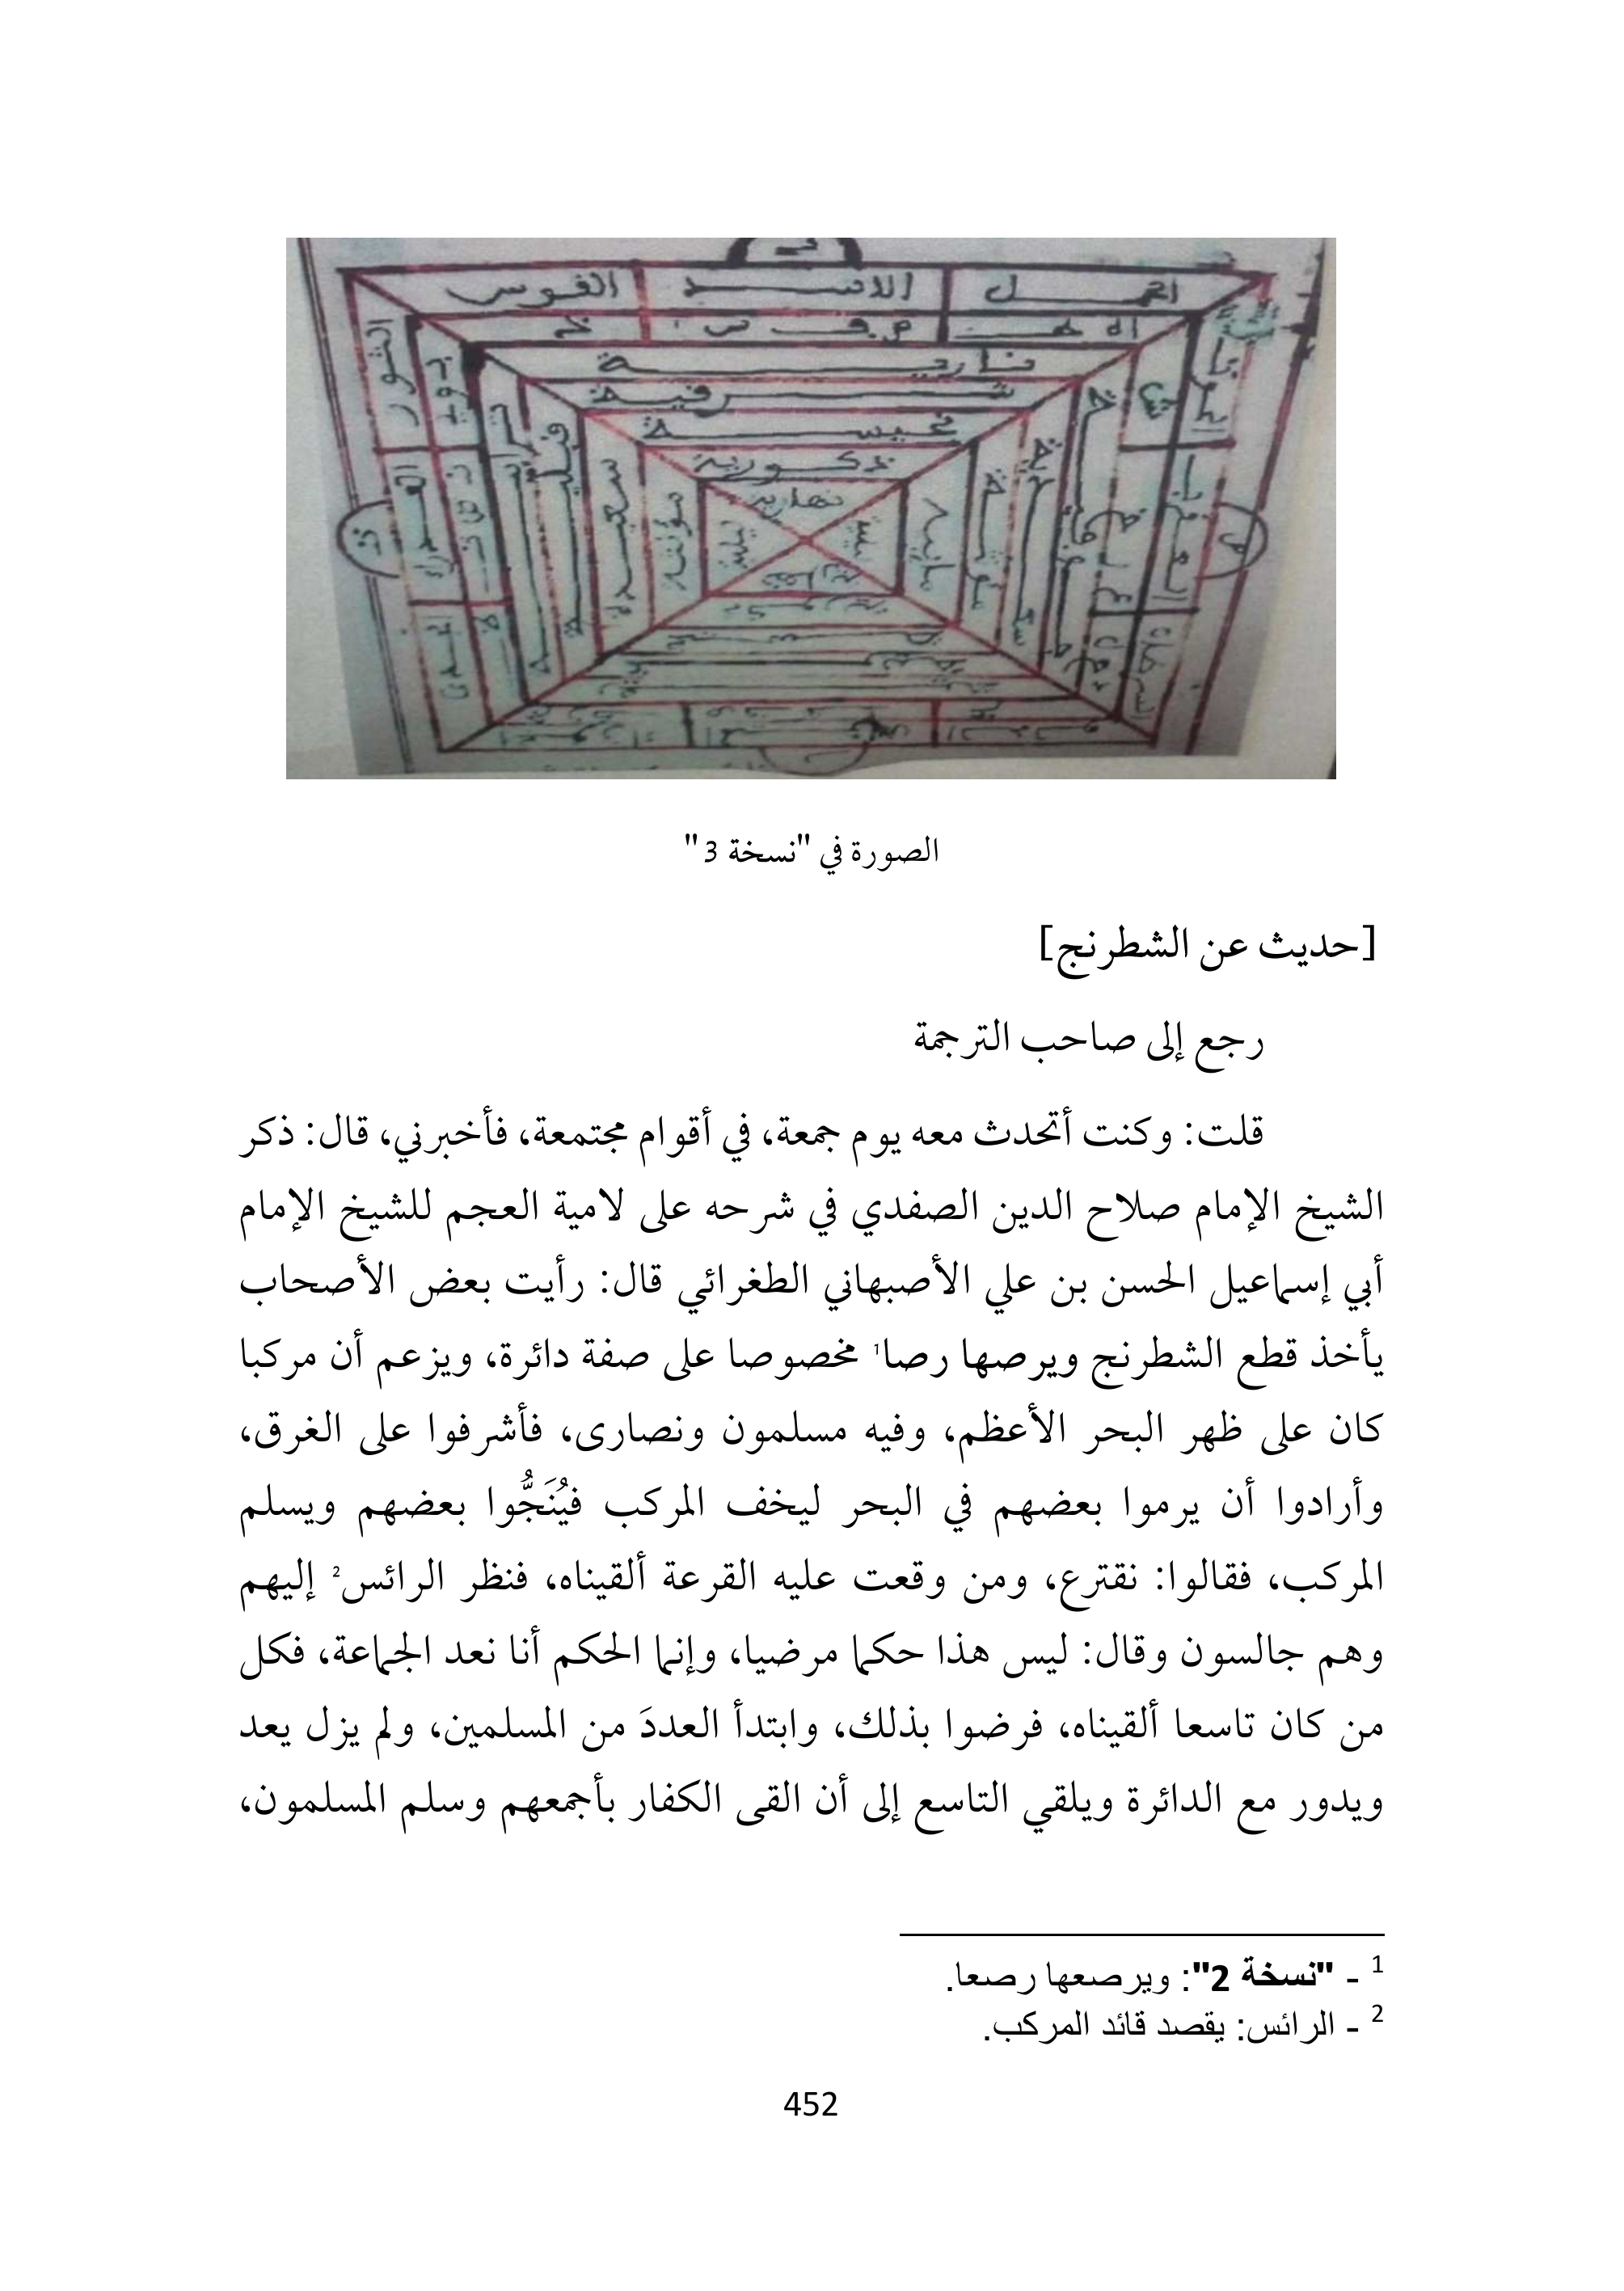 الحمل
الاسد
القوس
نارية
شرقية
ذكورية
نهارية
الثور
الصورة في "نسخة 3"
[حديث عن الشطرنج]
رجع إلى صاحب الترجمة
قلت: وكنت أتحدث معه يوم جمعة، في أقوام مجتمعة، فأخبرني، قال: ذكر
الشيخ الإمام صلاح الدين الصفدي في شرحه على لامية العجم للشيخ الإمام
أبي إسماعيل الحسن بن علي الأصبهاني الطغرائي قال: رأيت بعض الأصحاب
يأخذ قطع الشطرنج ويرصها رصا¹ مخصوصا على صفة دائرة، ويزعم أن مركبا
كان على ظهر البحر الأعظم، وفيه مسلمون ونصارى، فأشرفوا على الغرق،
وأرادوا أن يرموا بعضهم في البحر ليخف المركب فيُنَجُّوا بعضهم ويسلم
المركب، فقالوا: نقترع، ومن وقعت عليه القرعة ألقيناه، فنظر الرائس² إليهم
وهم جالسون وقال: ليس هذا حكما مرضيا، وإنما الحكم أنا نعد الجماعة، فكل
من كان تاسعا ألقيناه، فرضوا بذلك، وابتدأ العددَ من المسلمين، ولم يزل يعد
ويدور مع الدائرة ويلقي التاسع إلى أن القى الكفار بأجمعهم وسلم المسلمون،
¹ - "نسخة 2": ويرصعها رصعا.
² - الرائس: يقصد قائد المركب.
452